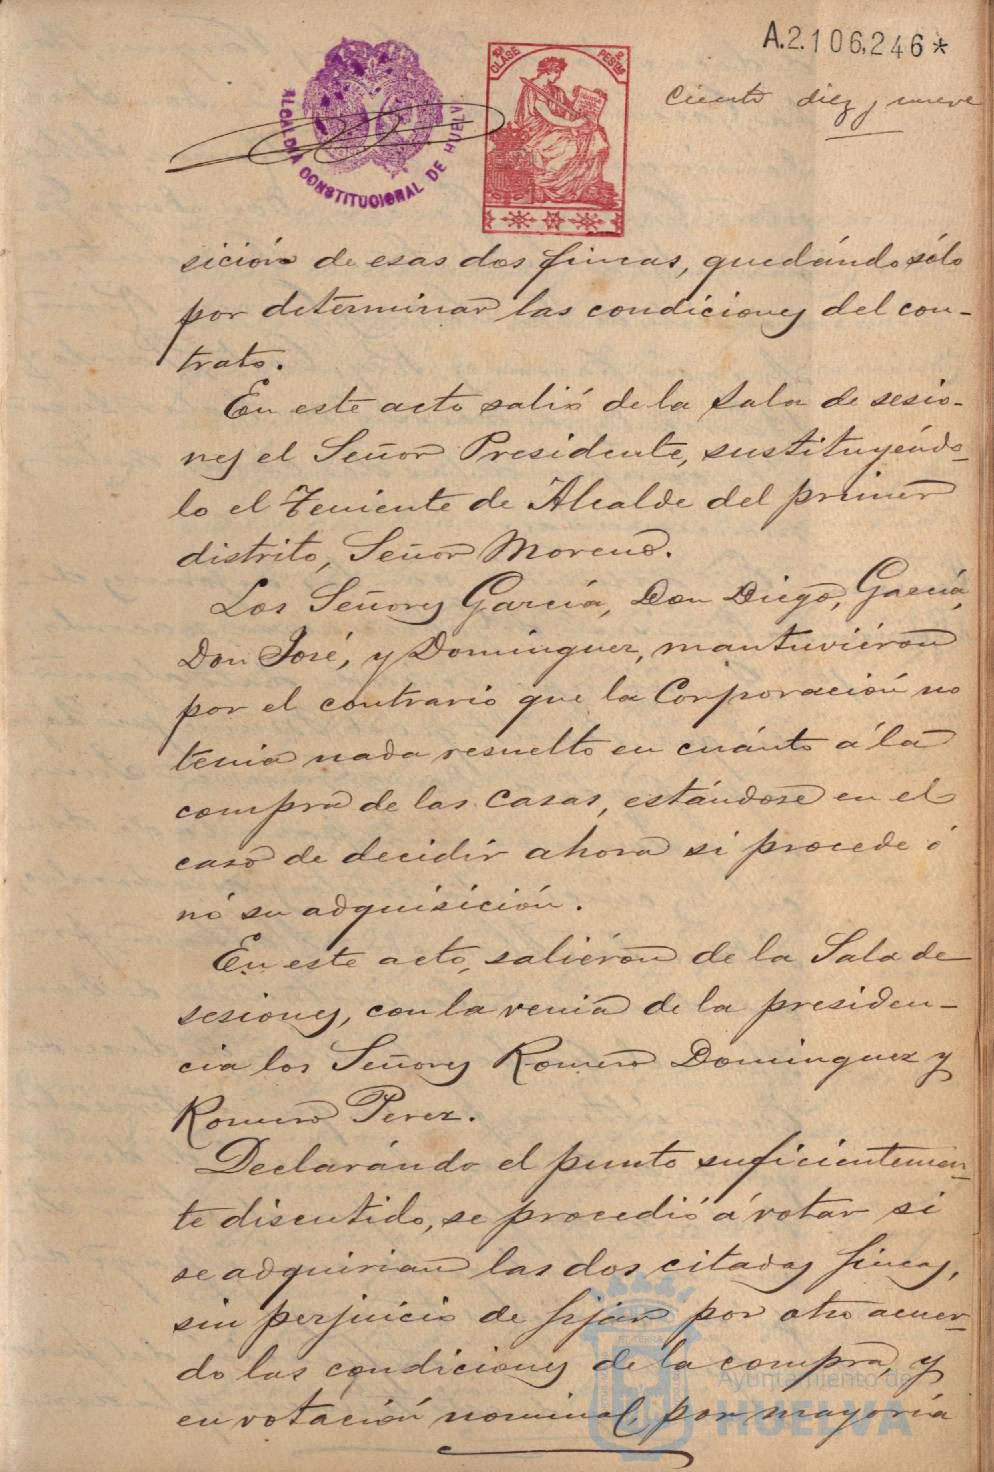 A.2.106,246*
Ciento diez y nueve
ALCALDÍA CONSTITUCIONAL DE HUELV
CLASE
sición de esas dos fincas, quedándo sólo
por determinar las condiciones del con-
trato.
En este acto salió de la Sala de sesio-
nes el Señor Presidente, sustituyéndo-
lo el Teniente de Alcalde del primer
distrito, Señor Moreno.
Los Señores García, Don Diego, García,
Don José, y Dominguez, mantuviéron
por el contrario que la Corporación no
tenia nada resuelto en cuánto á la
compra de las casas, estándose en el
caso de decidir ahora si procede ó
nó su adquisición.
En este acto, saliéron de la Sala de
sesiones, con la venia de la presiden-
cia los Señores Romero Dominguez y
Romero Perez.
Declarándo el punto suficientemen-
te discutido, se procedió á votar si
se adquirian las dos citadas fincas,
sin perjuicio de fijar por otro acuer-
do las condiciones de la compra, y
en votación nominal, por mayoría
Ayuntamiento de
HUELVA